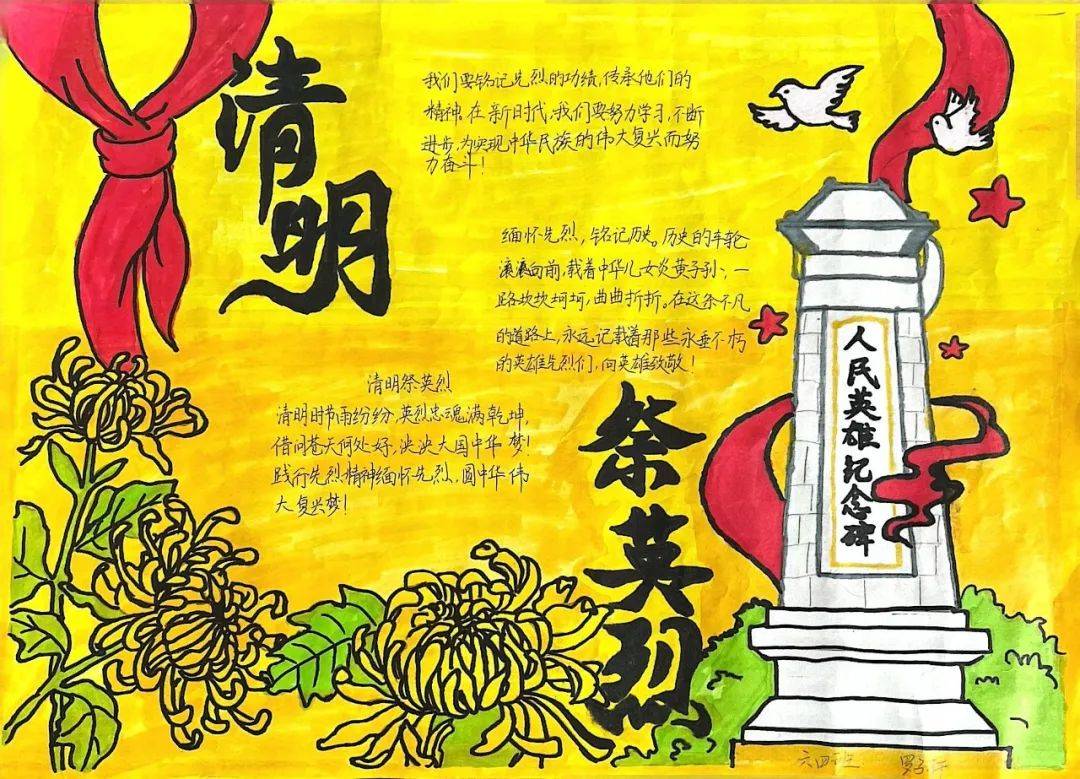 清明
我们要铭记先烈的功绩,传承他们的
精神,在新时代,我们要努力学习,不断
进步,为实现中华民族的伟大复兴而努
力奋斗!
缅怀先烈,铭记历史。历史的车轮
滚滚向前,载着中华儿女炎黄子孙、一
路坎坎坷坷,曲曲折折。在这条不凡
的道路上,永远记载着那些永垂不朽
的英雄先烈们,向英雄致敬!
清明祭英烈
清明时节雨纷纷,英烈忠魂满乾坤,
借问苍天何处好,泱泱大国中华梦!
践行先烈精神缅怀先烈,圆中华伟
大复兴梦!
祭英烈
人民英雄纪念碑
六四班